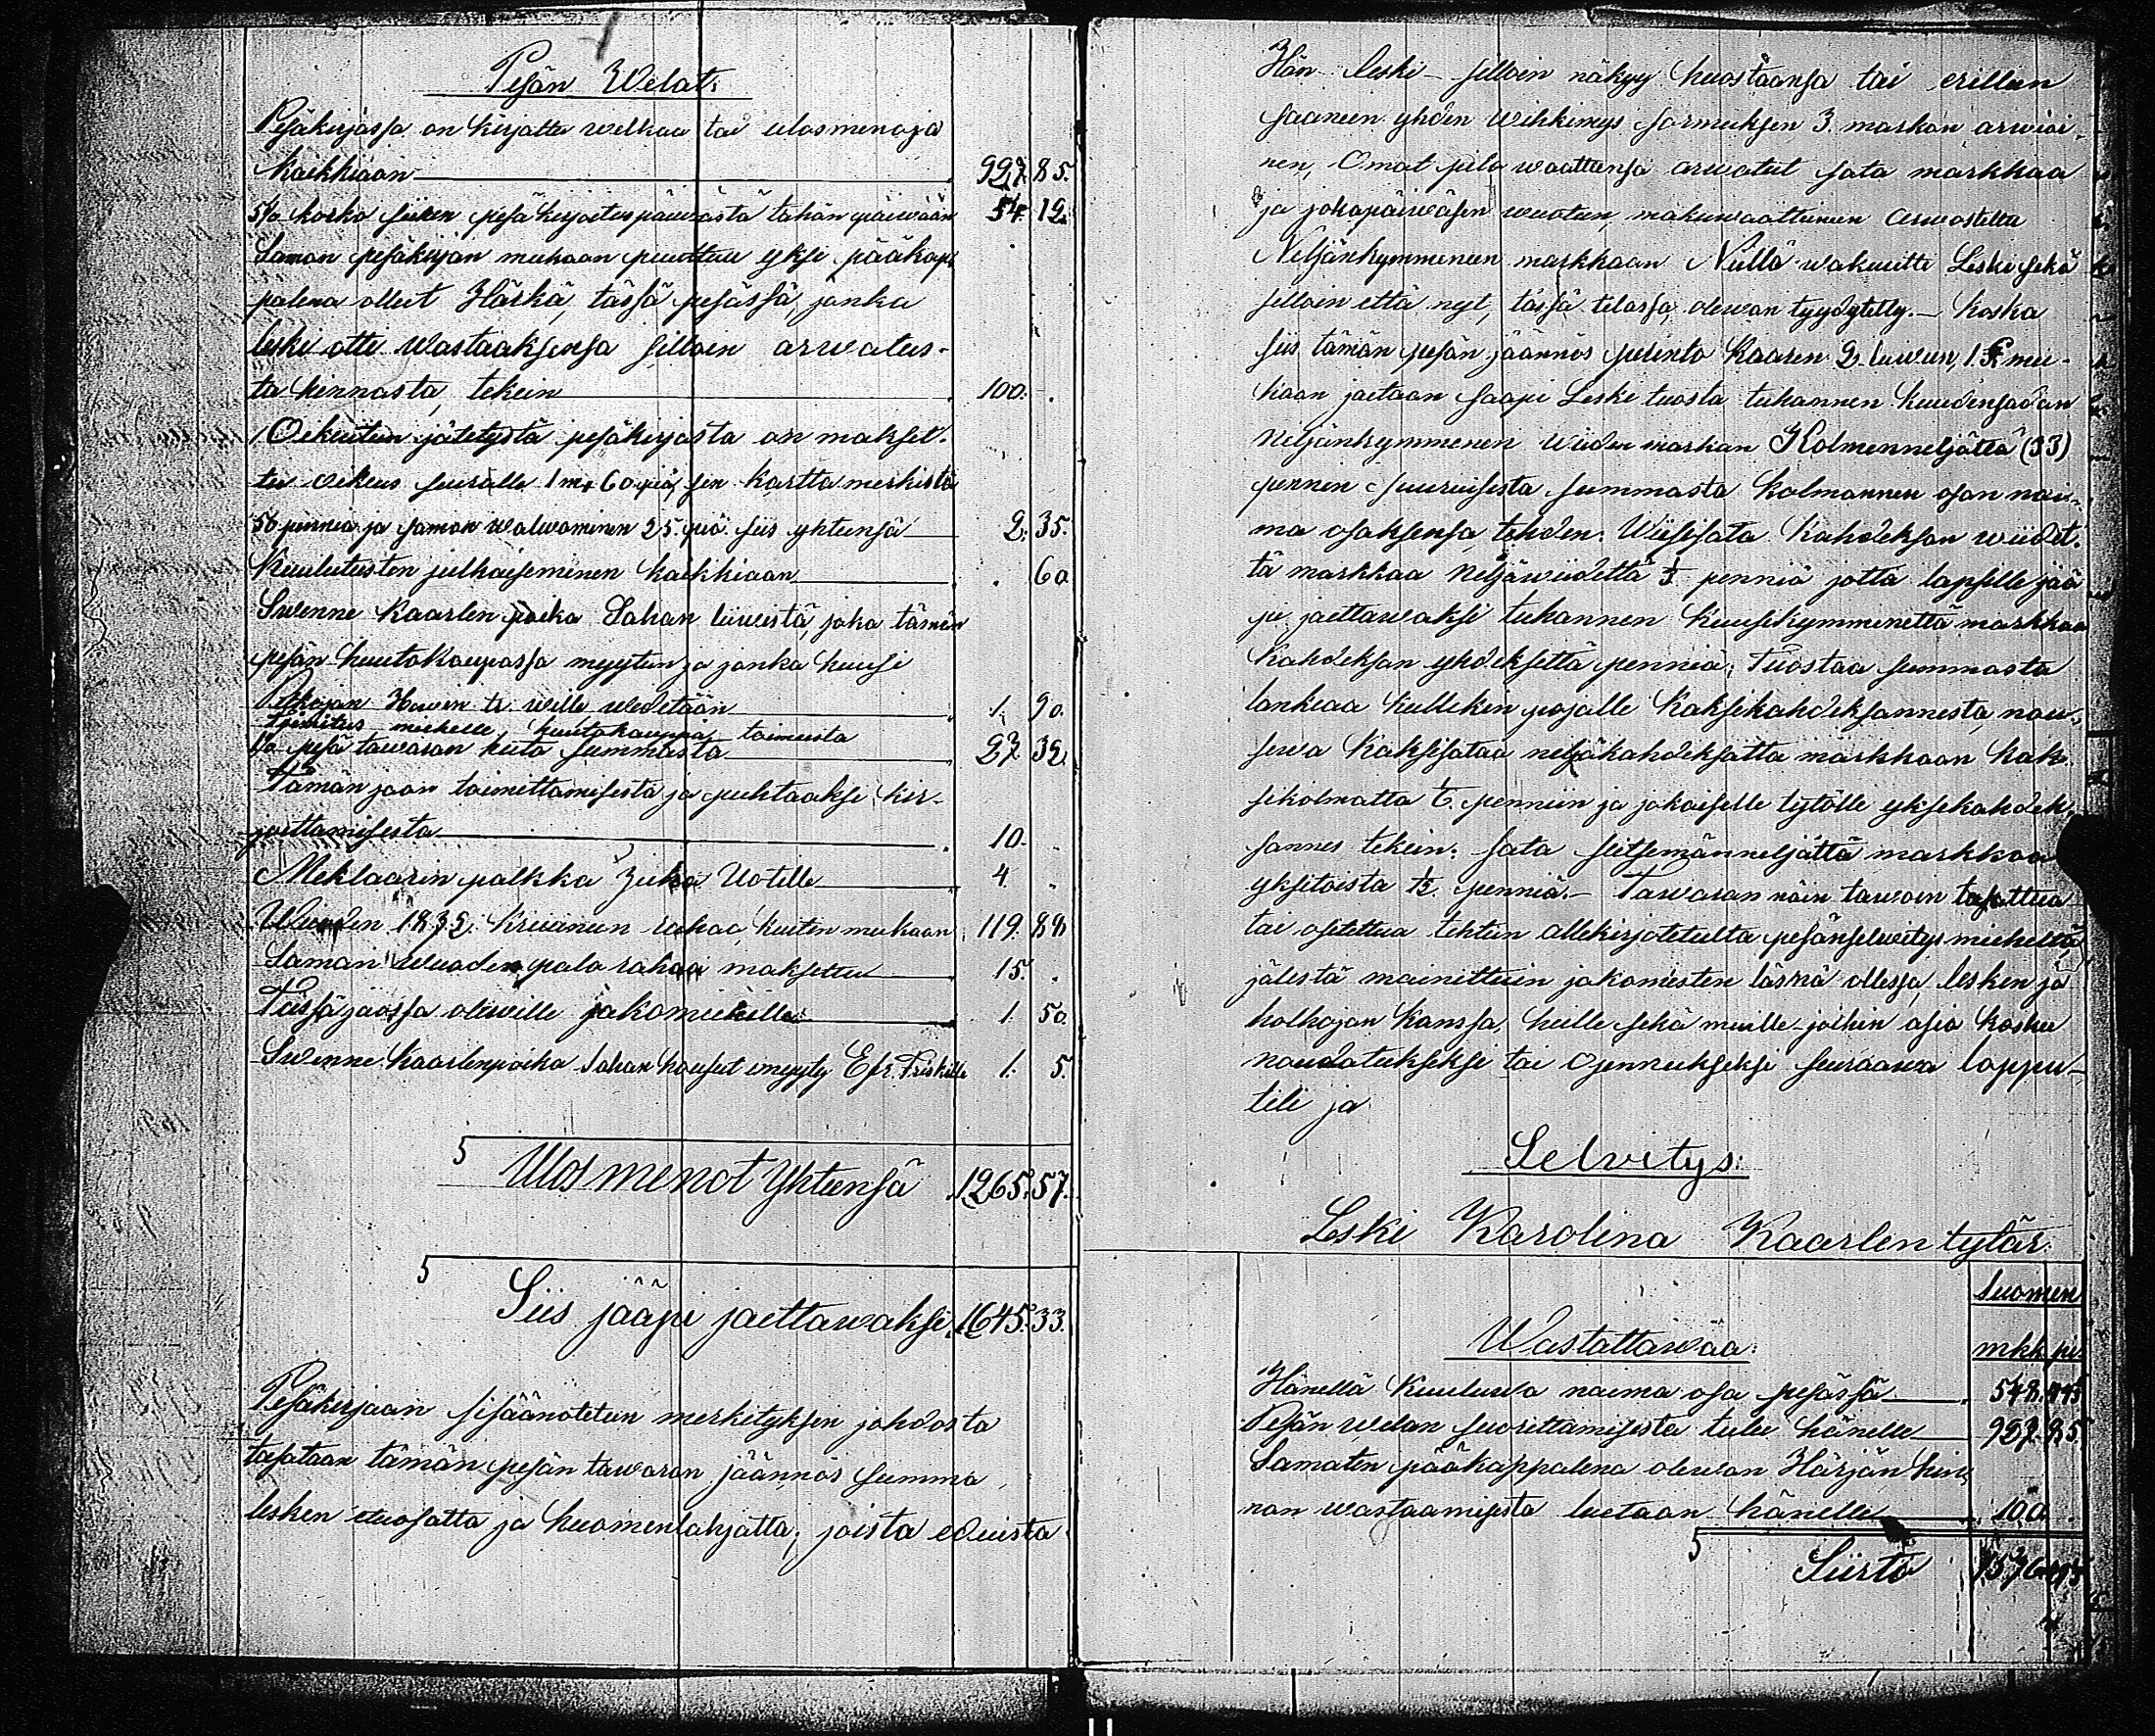 Pesän Welat:
Pesäkirjassa on kirjattu welkaa tai ulosmenoja
kaikkiaan 927. 85.
5% korko siitten pesäkirjoitus päiwästä tähän päiwään 54. 12.
Saman pesäkirjan mukaan puuttuu yksi pääkap-
palena ollut Härkä, tässä pesässä, jonka
leski otti wastaaksensa silloin arwatus-
ta hinnasta, tekein 100. .
Oikeuteen jätetystä pesäkirjasta on makset-
tu oikeus seuralle 1 m. 60 piä, sen kartta merkistä
50 penniä ja saman walwominen 25. piä. siis yhteensä 2. 35.
Kuulutusten julkaiseminen kaikkiaan . 60
Swenne Kaarlen poika Sahan liiwistä, joka tämän
pesän huutokaupassa myytiin ja jonka kuusi
Pekojan Hawen tr. wille wedetään 1. 90.
toimitus miehelle, huutokauppa toimesta
1% pesä tawaran huto summasta 27 32.
Tämän jaon toimittamisesta ja puhtaaksi kir-
joittamisesta 10. .
Meklaarin palkka Juha Uotille 4 .
Wuoden 1872 kruunun rahaa kuitin mukaan 119. 88
Saman wuoden palo rahaa maksettu 15. .
Tässä jaossa olewille jakomiehille 1. 50.
Swenne Kaarlenpoika Sahan housut myyty Efr. Friskille 1. 5.
5 Ulosmenot Yhteensä 1265. 57.
5 Siis jääpi jaettawaksi 1645. 33.
Pesäkirjaan sisäänotetun merkityksen johdosta
tasataan tämän pesän tawaran jäännös summa
lesken etuosatta ja huomenlahjatta, joista eduista
Hän leski silloin näkyy huostaansa tai erillään
saaneen yhden wihkimys sormuksen 3. markan arwioi-
nen, Omat pito waatteensa arwatut sata markkaa
ja jokapäiwäsen wuoteen, makuwaatteineen arwostettu
Neljänkymmeneen markkaan Niillä wakuutti Leski sekä
silloin että nyt, tässä tilassa olewan tyydytetty.- koska
siis tämän pesän jäännös perintö Kaaren 2. luwun, 1. §. mu-
kaan jaetaan saapi Leski tuosta tuhannen kuudensadan
neljänkymmenen wiiden markan Kolmenneljättä (33)
pennin suuruisesta summasta kolmannen osan nai-
ma osaksensa, tehden: Wiisisata kahdeksan wiidet-
tä markkaa neljäwiidettä 1/3 penniä jotta lapsille jää-
pi jaettawaksi tuhannen kuusikymmenettä markkaa
kahdeksan yhdeksettä penniä; Tuostaa summasta
lankeaa kullekin pojalle kaksikahdeksannesta, nou-
sewa kaksisataa neljäkahdeksatta markkaan kak-
sikolmatta t. penniin ja jokaiselle tytölle yksikahdek-
sannes tekein: sata seitsemänneljättä markkaa
yksitoista t. penniä.- Tawaran näin tawoin tasattua
tai ositettua tehtiin allekirjotetuilta pesänselwitys miehiltä,
jälestä mainittuin jakomiesten läsnä ollessa, lesken ja
holhojan kanssa, heille sekä muille joihin asia koskee
noudatukseksi tai ojennukseksi seuraawa loppu-
tili ja
Selvitys:
Leski Karolina Kaarlentytär.
Suomen
Wastattawaa: mkk pi.
Hänellä kuuluwa naima osa pesässä 548. 44⅓
Pesän welan suorittamisesta tulee hänelle 927. 85.
Samaten pääkappalena olewan Härjän hin-
nan wastaamisesta luetaan hänelle 100 .
5 Siirto 1576